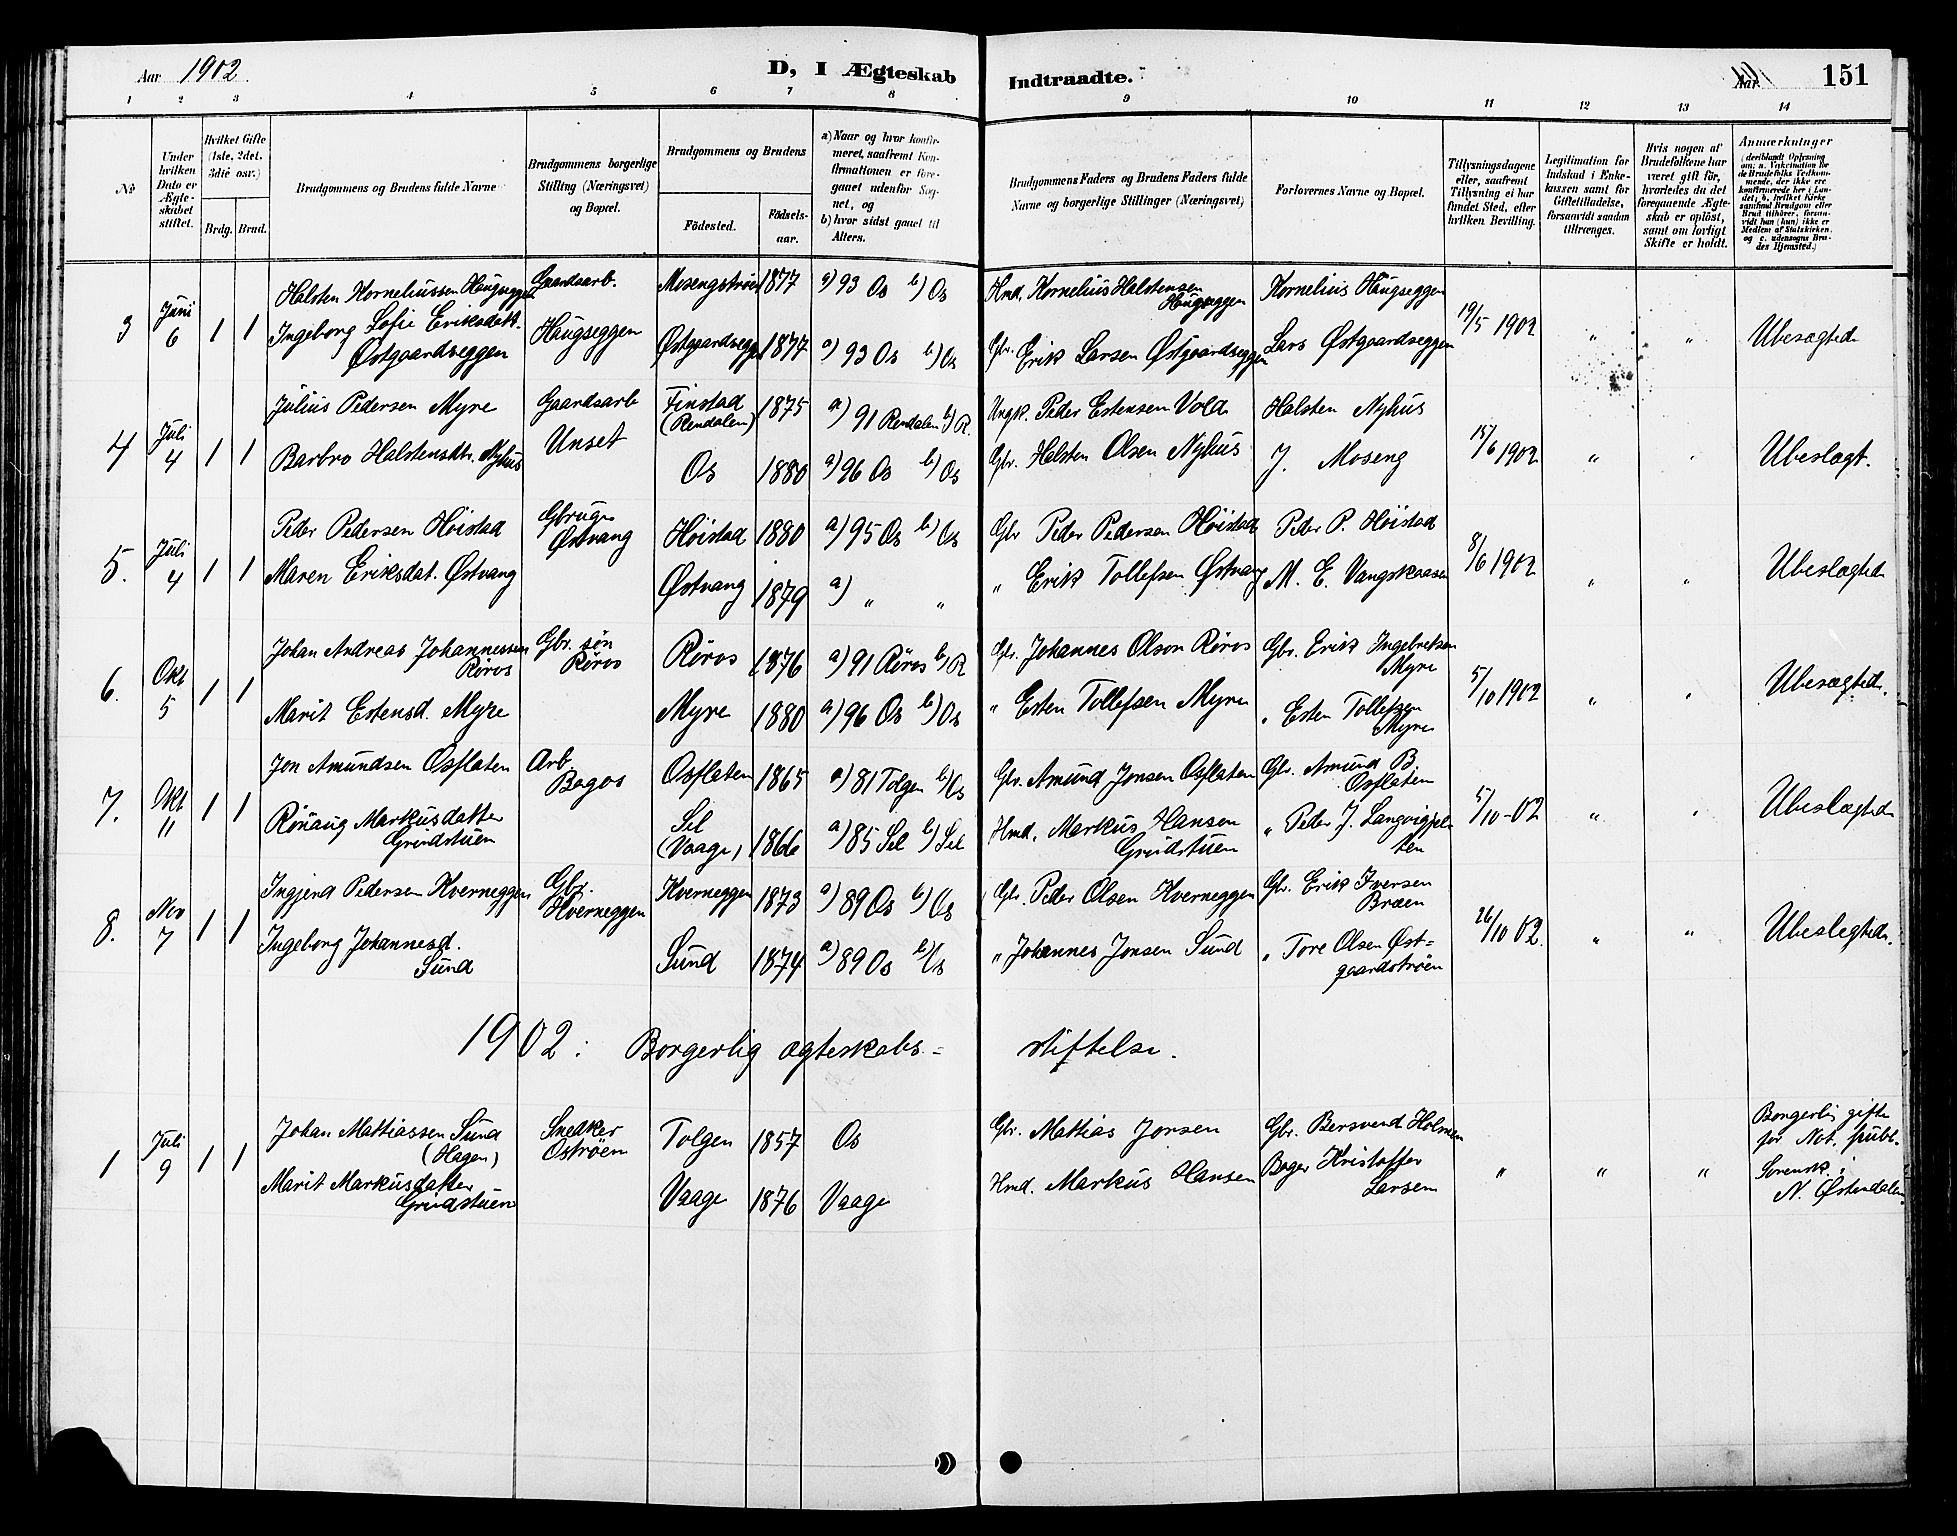 Aar 1902. D, I Ægteskab Indtraadte. Aar 151
1 2 3 4 5 6 7 8 9 10 11 12 13 14
No
Under hvilken Dato er Ægteskabet stiftet.
Hvilket Gifte (1ste, 2det, 3die osv.)
Brdg. Brud.
Brudgommens og Brudens fulde Navne
Brudgommens borgerlige Stilling (Næringsvei) og Bopæl.
Brudgommens og Brudens
Födested. Födsels-aar.
a) Naar og hvor konfirmeret, saafremt Konfirmationen er foregaaet udenfor Sognet, og
b) hvor sidst gaaet til Alters.
Brudgommens Faders og Brudens Faders fulde Navne og borgerlige Stillinger (Næringsvei)
Forlovernes Navne og Bopæl.
Tillysningsdagene eller, saafremt Tillysning ei har fundet Sted, efter hvilken Bevilling.
Legitimation for Indskud i Enkekassen samt for Giftetilladelse, forsaavidt saadan tiltrænges.
Hvis nogen af Brudefolkene har været gift før, hvorledes da det foregaaende Ægteskab er oplöst, samt om lovligt Skifte er holdt.
Anmærkninger
(deriblandt Oplysning om: a. Vakcination for de Brudefolks Vedkommende, der ikke ere konfirmerede her i Landet; b. hvilket Kirkesamfund Brudgom eller Brud tilhører, forsaavidt han (hun) ikke er Medlem af Statskirken, og c. udensogns Brudes Hjemsted.)
3 Juni 6 1 1
Halsten Korneliussen Haugseggen Gaardsarb. Mosengstrøen 1877 a) 93 Os b) Os Hmd. Kornelius Halstensen Haugseggen Kornelius Haugseggen
Ingeborg Sofie Eriksdatt. Østgaardseggen Haugseggen Østgaardseggen 1877 a) 93 Os b) Os Gbr. Erik Larsen Østgaardseggen Lars Østgaardseggen 19/5 1902 " " Ubesægtede
4 Juli 4 1 1
Julius Pedersen Myre Gaardsarb Finstad (Rendalen) 1875 a) 91 Rendalen b) R. Ungk. Peder Estensen Vold Halsten Nyhus
Barbro Halstensdtr. Nyhus Unset Os 1880 a) 96 Os b) Os Gbr. Halsten Olsen Nyhus J. Moseng 15/6 1902 " " Ubeslægt.
5. Juli 4 1 1
Peder Pedersen Höistad Gbruger Østvang Höistad 1880 a) 95 Os b) Os Gbr Peder Pedersen Höistad Peder P. Höistad
Maren Eriksdat. Østvang Østvang 1879 a) " " " Erik Tollefsen Østvang M. E. Vangskaasen 8/6 1902 " " Ubeslægtede
6. Okt 5 1 1
Johan Andreas Johannessen Røros Gbr. søn Røros Røros 1876 a) 91 Røros b) R Gbr. Johannes Olson Røros Gbr. Erik Ingebretsen Myre
Marit Estensd. Myre Myre 1880 a) 96 Os b) Os " Esten Tollefsen Myre " Esten Tollefsen Myre 5/10 1902 " " Ubesægtede.
7. Okt 11 1 1
Jon Amundsen Osflaten Arb. Bagos Osflaten 1865 a) 81 Tolgen b) Os Gbr. Amund Jonsen Osflaten Gbr. Amund B. Osflaten
Rönaug Markusdatter Grindstuen Sel (Vaage) 1866 a) 85 Sel b) Sel Hmd. Markus Hansen Grindstuen " Peder J. Langvigjelten 5/10-02 " " Ubeslægtede
8. Nov 7 1 1
Ingjerd Pedersen Hverneggen Gbr. Hverneggen Hverneggen 1873 a) 89 Os b) Os Gbr. Peder Olsen Hverneggen Gbr. Erik Iversen Bræen
Ingeborg Johannesd. Sund Sund 1874 a) 89 Os b) Os " Johannes Jonsen Sund " Tore Olsen Østgaardstrøen 26/10 02. " " Ubeslegtede.
1902: Borgerlig ægteskabs= stiftelse.
1 Juli 9 1 1
Johan Mattiassen Sund (Hagen) Snedker Ostrøen Tolgen 1857 Os Gbr. Mattias Jonsen Gbr. Bersvend Holmen
Marit Markusdatter Grindstuen Vaage 1876 Vaage Hmd. Markus Hansen Bager Kristoffer Larsen " " "
Borgerlig gifte
for Not. publ.
Sorensk. i
N. Østerdalen